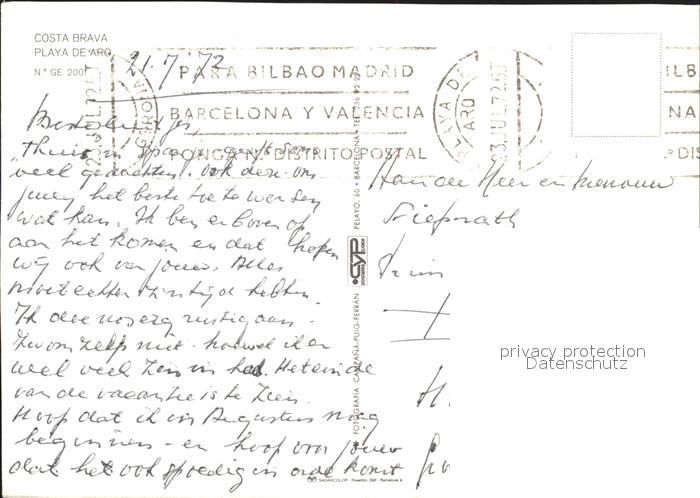 COSTA BRAVA
PLAYA DE ARO
N.º GE. 200
21.7.'72
PARA BILBAO MADRID
BARCELONA Y VALENCIA
PONGA N.º DISTRITO POSTAL
PLAYA DE ARO
23.JUL.72
"Thuis in Spanje
veel gedachten. ook deze om
jou het beste toe te wensen
wat kan. Ik ben er boven op
aan het komen en dat hopen
wij ook van jouw. Alles
moet echter zijn tijd hebben.
Ik doe nog erg rustig aan.
Zwom zelfs niet hoewel ik er
wel veel zin in had. Het einde
van de vacantie is te zien.
Hoop dat ik in Augustus mag
beginnen - en hoop voor jouw
dat het ook spoedig in orde komt
Aan de Heer en Mevrouw
PELAYO, 60 • BARCELONA • TEL.
CYP
FOTOGRAFIA CAMPAÑA-PUIG-FERRÁN
SADAGCOLOR - Rosellón, 298 - Barcelona
privacy protection
Datenschutz